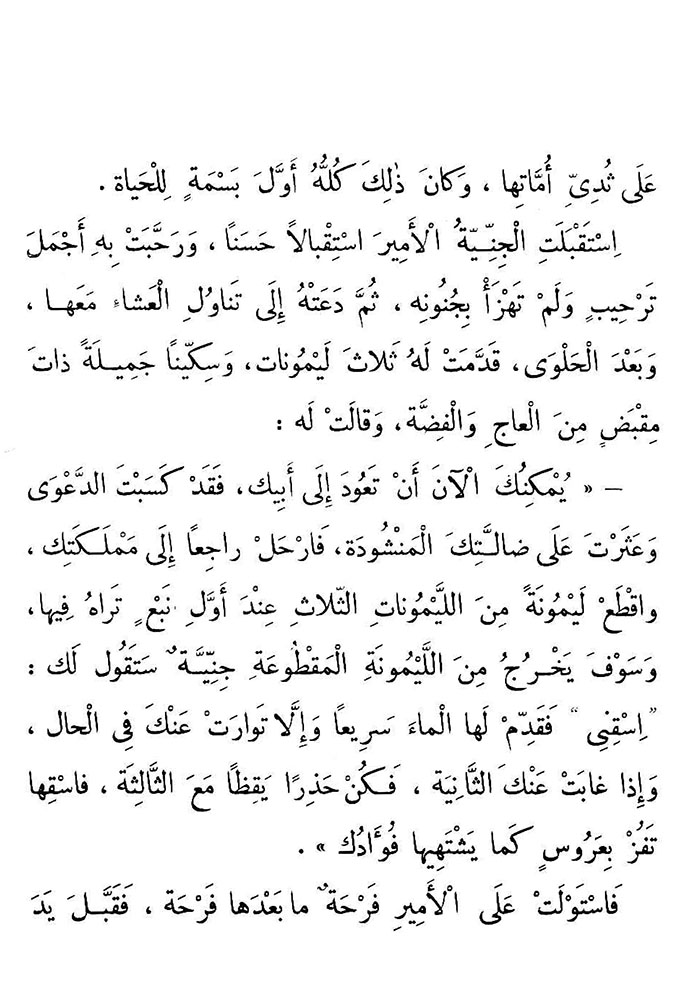 عَلَى ثُدِىِّ أُمَّاتِها ، وَكانَ ذٰلِكَ كُلُّهُ أَوَّلَ بَسْمَةٍ لِلْحَياة .
اِسْتَقْبَلَتِ الْجِنِّيَّةُ الْأَمِيرَ اسْتِقْبالاً حَسَنًا ، وَرَحَّبَتْ بِهِ أَجْمَلَ
تَرْحِيبٍ وَلَمْ تَهْزَأْ بِجُنُونِه ، ثُمَّ دَعَتْهُ إِلَى تَناوُلِ الْعَشاءِ مَعَها ،
وَبَعْدَ الْحَلْوَى ، قَدَّمَتْ لَهُ ثَلاثَ لَيْمُونات ، وَسِكِّينًا جَمِيلَةً ذاتَ
مِقْبَضٍ مِنَ الْعاجِ وَالْفِضَّة ، وَقالَتْ لَه :
– « يُمْكِنُكَ الْآنَ أَنْ تَعُودَ إِلَى أَبِيك ، فَقَدْ كَسَبْتَ الدَّعْوَى
وَعَثَرْتَ عَلَى ضالَّتِكَ الْمَنْشُودَة ، فَارْحَلْ راجِعاً إِلَى مَمْلَكَتِك ،
واقْطَعْ لَيْمُونَةً مِنَ اللَّيْمُوناتِ الثَّلاثِ عِنْدَ أَوَّلِ نَبْعٍ تَراهُ فِيها ،
وَسَوْفَ يَخْرُجُ مِنَ اللَّيْمُونَةِ الْمَقْطُوعَةِ جِنِّيَّةٌ سَتَقُول لَك :
”اِسْقِنِى“ فَقَدِّمْ لَها الْماءَ سَرِيعاً وَإِلَّا تَوارَتْ عَنْكَ فِى الْحال ،
وَإِذا غابَتْ عَنْكَ الثَّانِيَة ، فَكُنْ حَذِرًا يَقِظًا مَعَ الثَّالِثَة ، فاسْقِها
تَفُزْ بِعَرُوسٍ كَما يَشْتَهِيها فُؤَادُك » .
فَاسْتَوْلَتْ عَلَى الْأَمِيرِ فَرْحَةٌ ما بَعْدَها فَرْحَة ، فَقَبَّلَ يَدَ